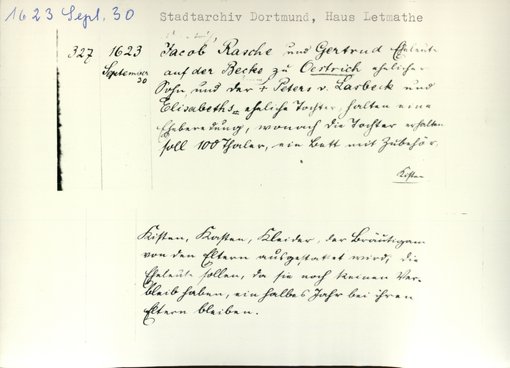 1623 Sept. 30
Stadtarchiv Dortmund, Haus Letmathe
327 1623 Jacob Rasche und Gertrud Eheleute
September 30 auf der Becke zu Oestrich ehelicher
Sohn und der + Peters v. Lasbeck und
Elisabeths = eheliche Tochter, halten eine
Eheberedung, wonach die Tochter erhalten
soll 100 Thaler, ein Bett mit Zubehör,
Kisten
Kisten, Kasten, Kleider, der Bräutigam
von den Eltern ausgestattet wird, die
Eheleute sollen, da sie noch keinen Ver-
bleib haben, ein halbes Jahr bei ihren
Eltern bleiben.